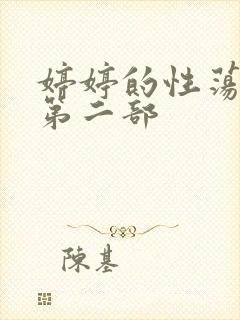 婷婷的性荡
第二部
陳基